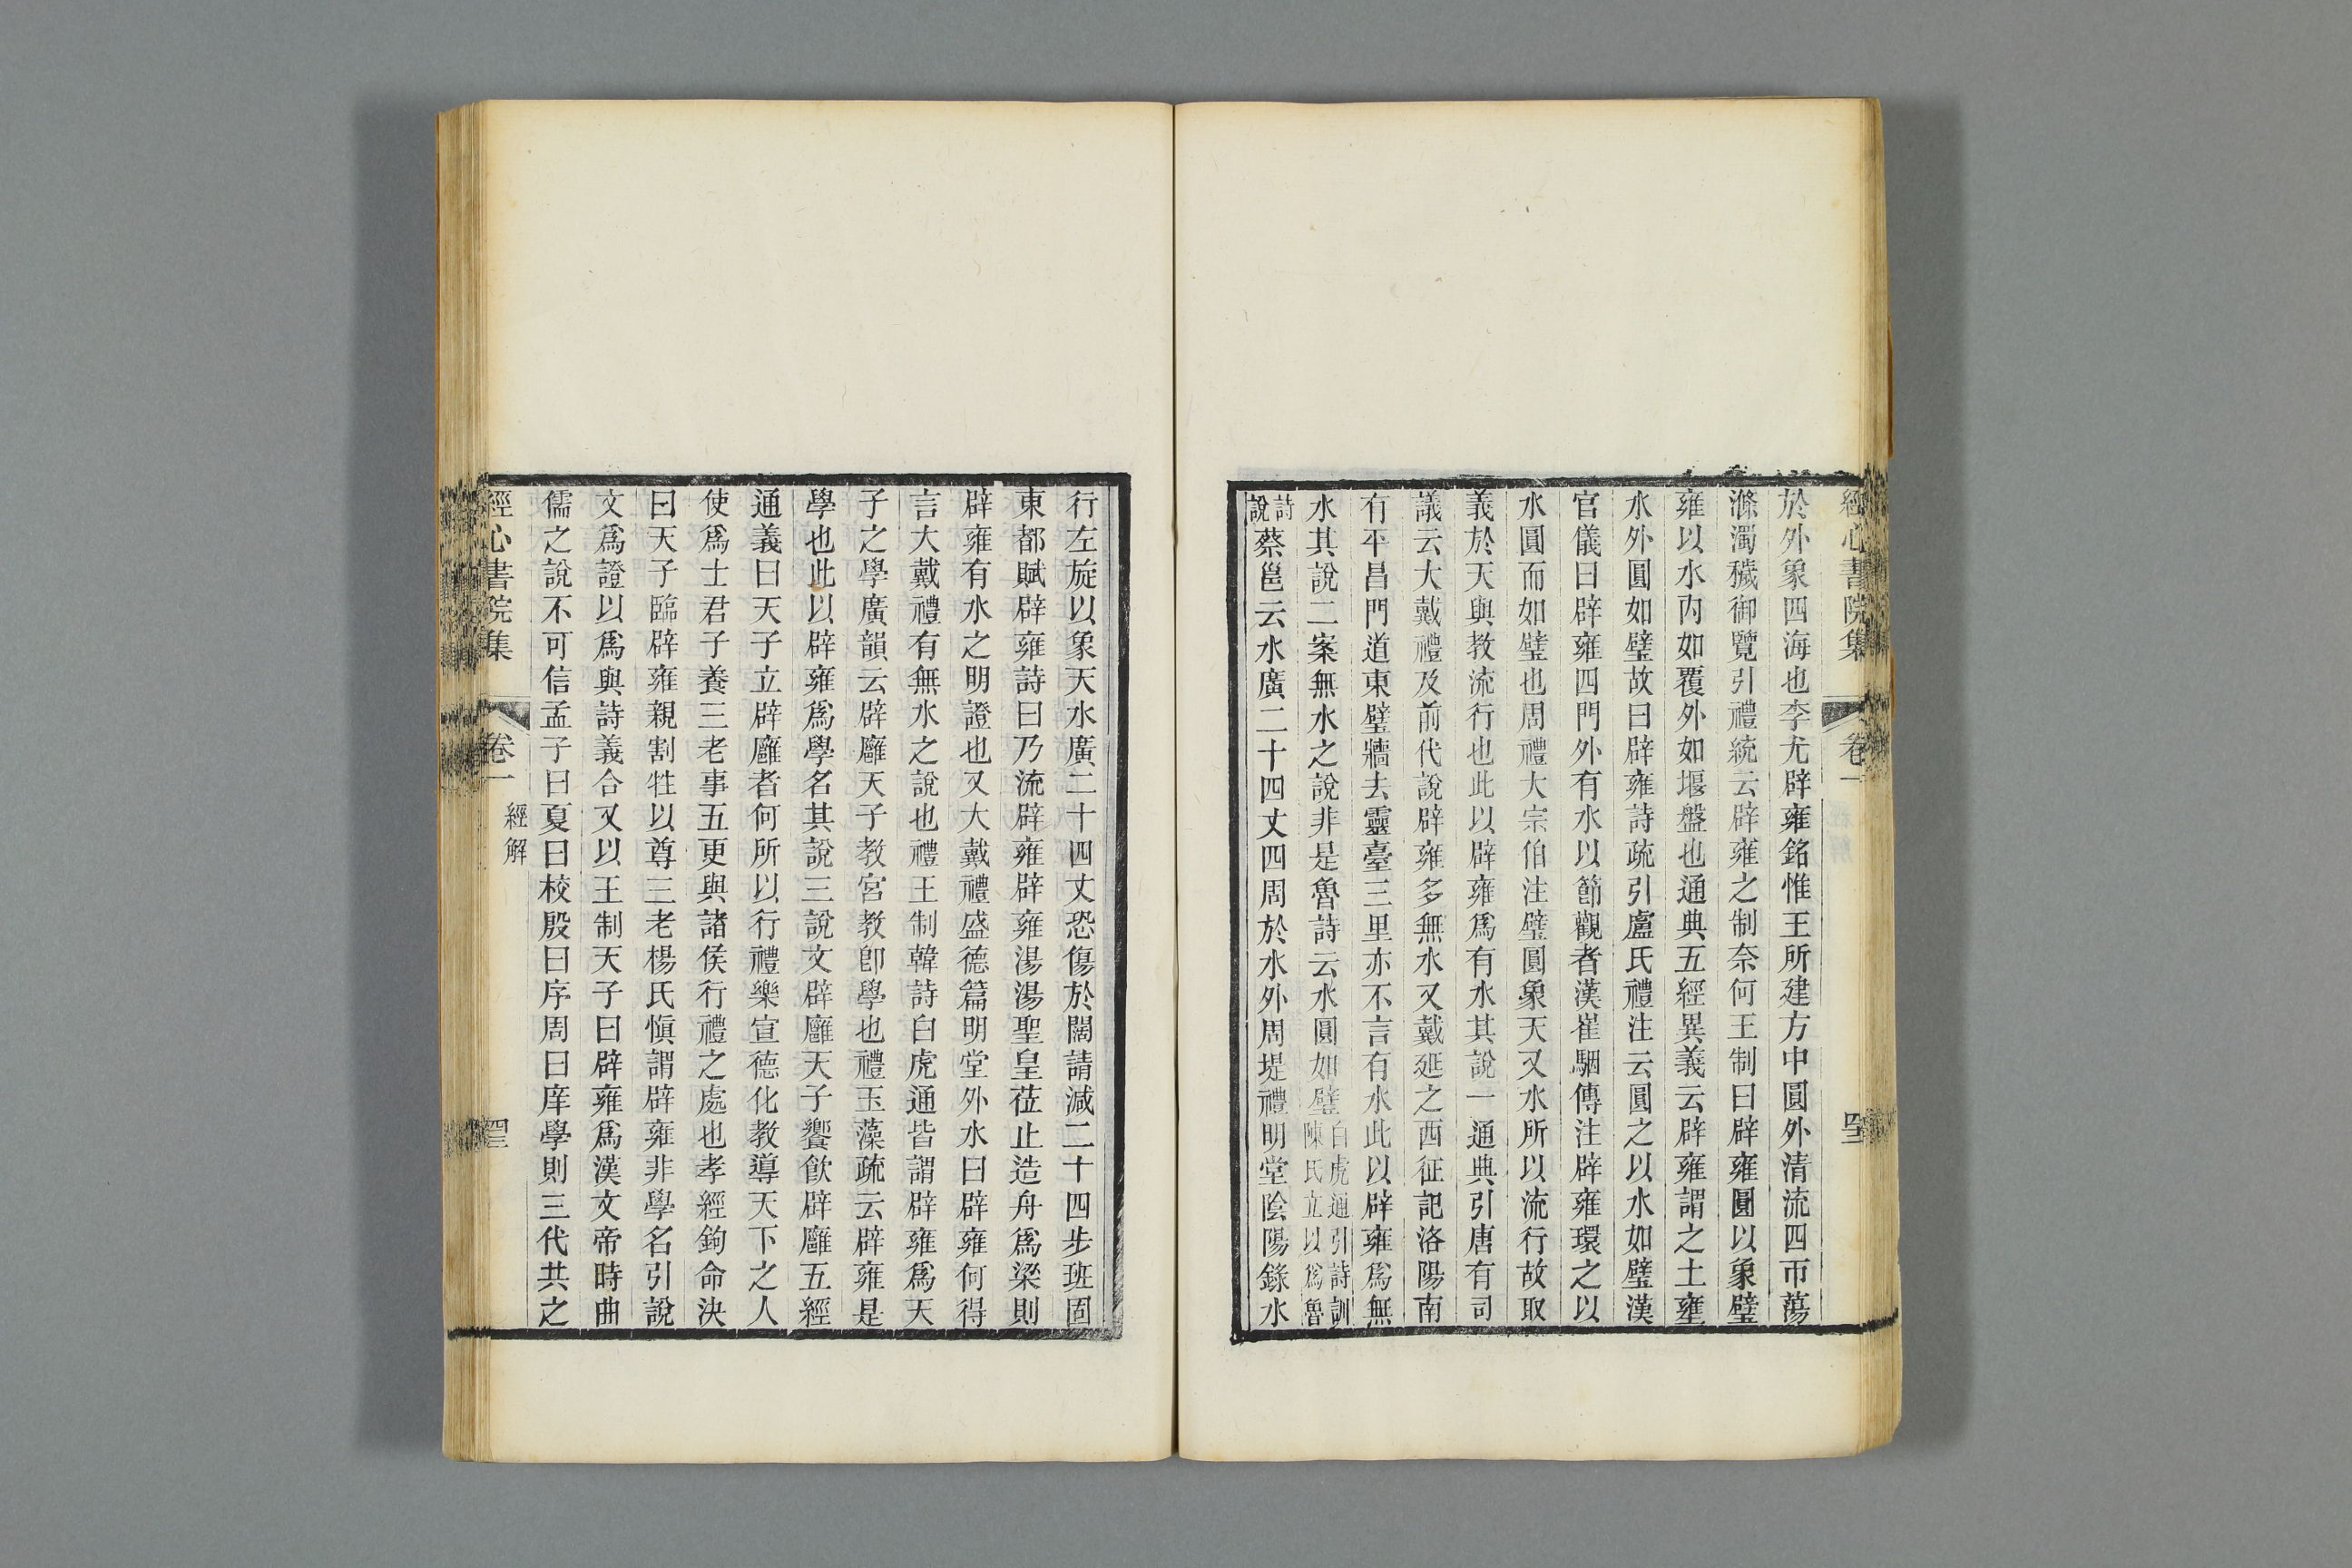 經心書院集 卷一
於外象四海也李尤辟雍銘惟王所建方中圓外清流四帀蕩
滌濁穢御覽引禮統云辟雍之制奈何王制曰辟雍圓以象璧
雍以水內如覆外如堰盤也通典五經異義云辟雍謂之土壅
水外圓如璧故曰辟雍詩疏引盧氏禮注云圓之以水如璧漢
官儀曰辟雍四門外有水以節觀者漢崔駰傳注辟雍環之以
水圓而如璧也周禮大宗伯注璧圓象天又水所以流行故取
義於天與教流行也此以辟雍爲有水其說一通典引唐有司
議云大戴禮及前代說辟雍多無水又戴延之西征記洛陽南
有平昌門道東璧牆去靈臺三里亦不言有水此以辟雍爲無
水其說二案無水之說非是魯詩云水圓如璧白虎通引詩訓陳氏立以爲魯
詩說蔡邕云水廣二十四丈四周於水外周堤禮明堂陰陽錄水
行左旋以象天水廣二十四丈恐傷於闊請減二十四步班固
東都賦辟雍詩曰乃流辟雍辟雍湯湯聖皇莅止造舟爲梁則
辟雍有水之明證也又大戴禮盛德篇明堂外水曰辟雍何得
言大戴禮有無水之說也禮王制韓詩白虎通皆謂辟雍爲天
子之學廣韻云辟廱天子教宮教卽學也禮玉藻疏云辟雍是
學也此以辟雍爲學名其說三說文辟廱天子饗飮辟廱五經
通義曰天子立辟廱者何所以行禮樂宣德化教導天下之人
使爲士君子養三老事五更與諸侯行禮之處也孝經鉤命決
曰天子臨辟雍親割牲以尊三老楊氏愼謂辟雍非學名引說
文爲證以爲與詩義合又以王制天子曰辟雍爲漢文帝時曲
儒之說不可信孟子曰夏曰校殷曰序周曰庠學則三代共之
經心書院集 卷一 經解